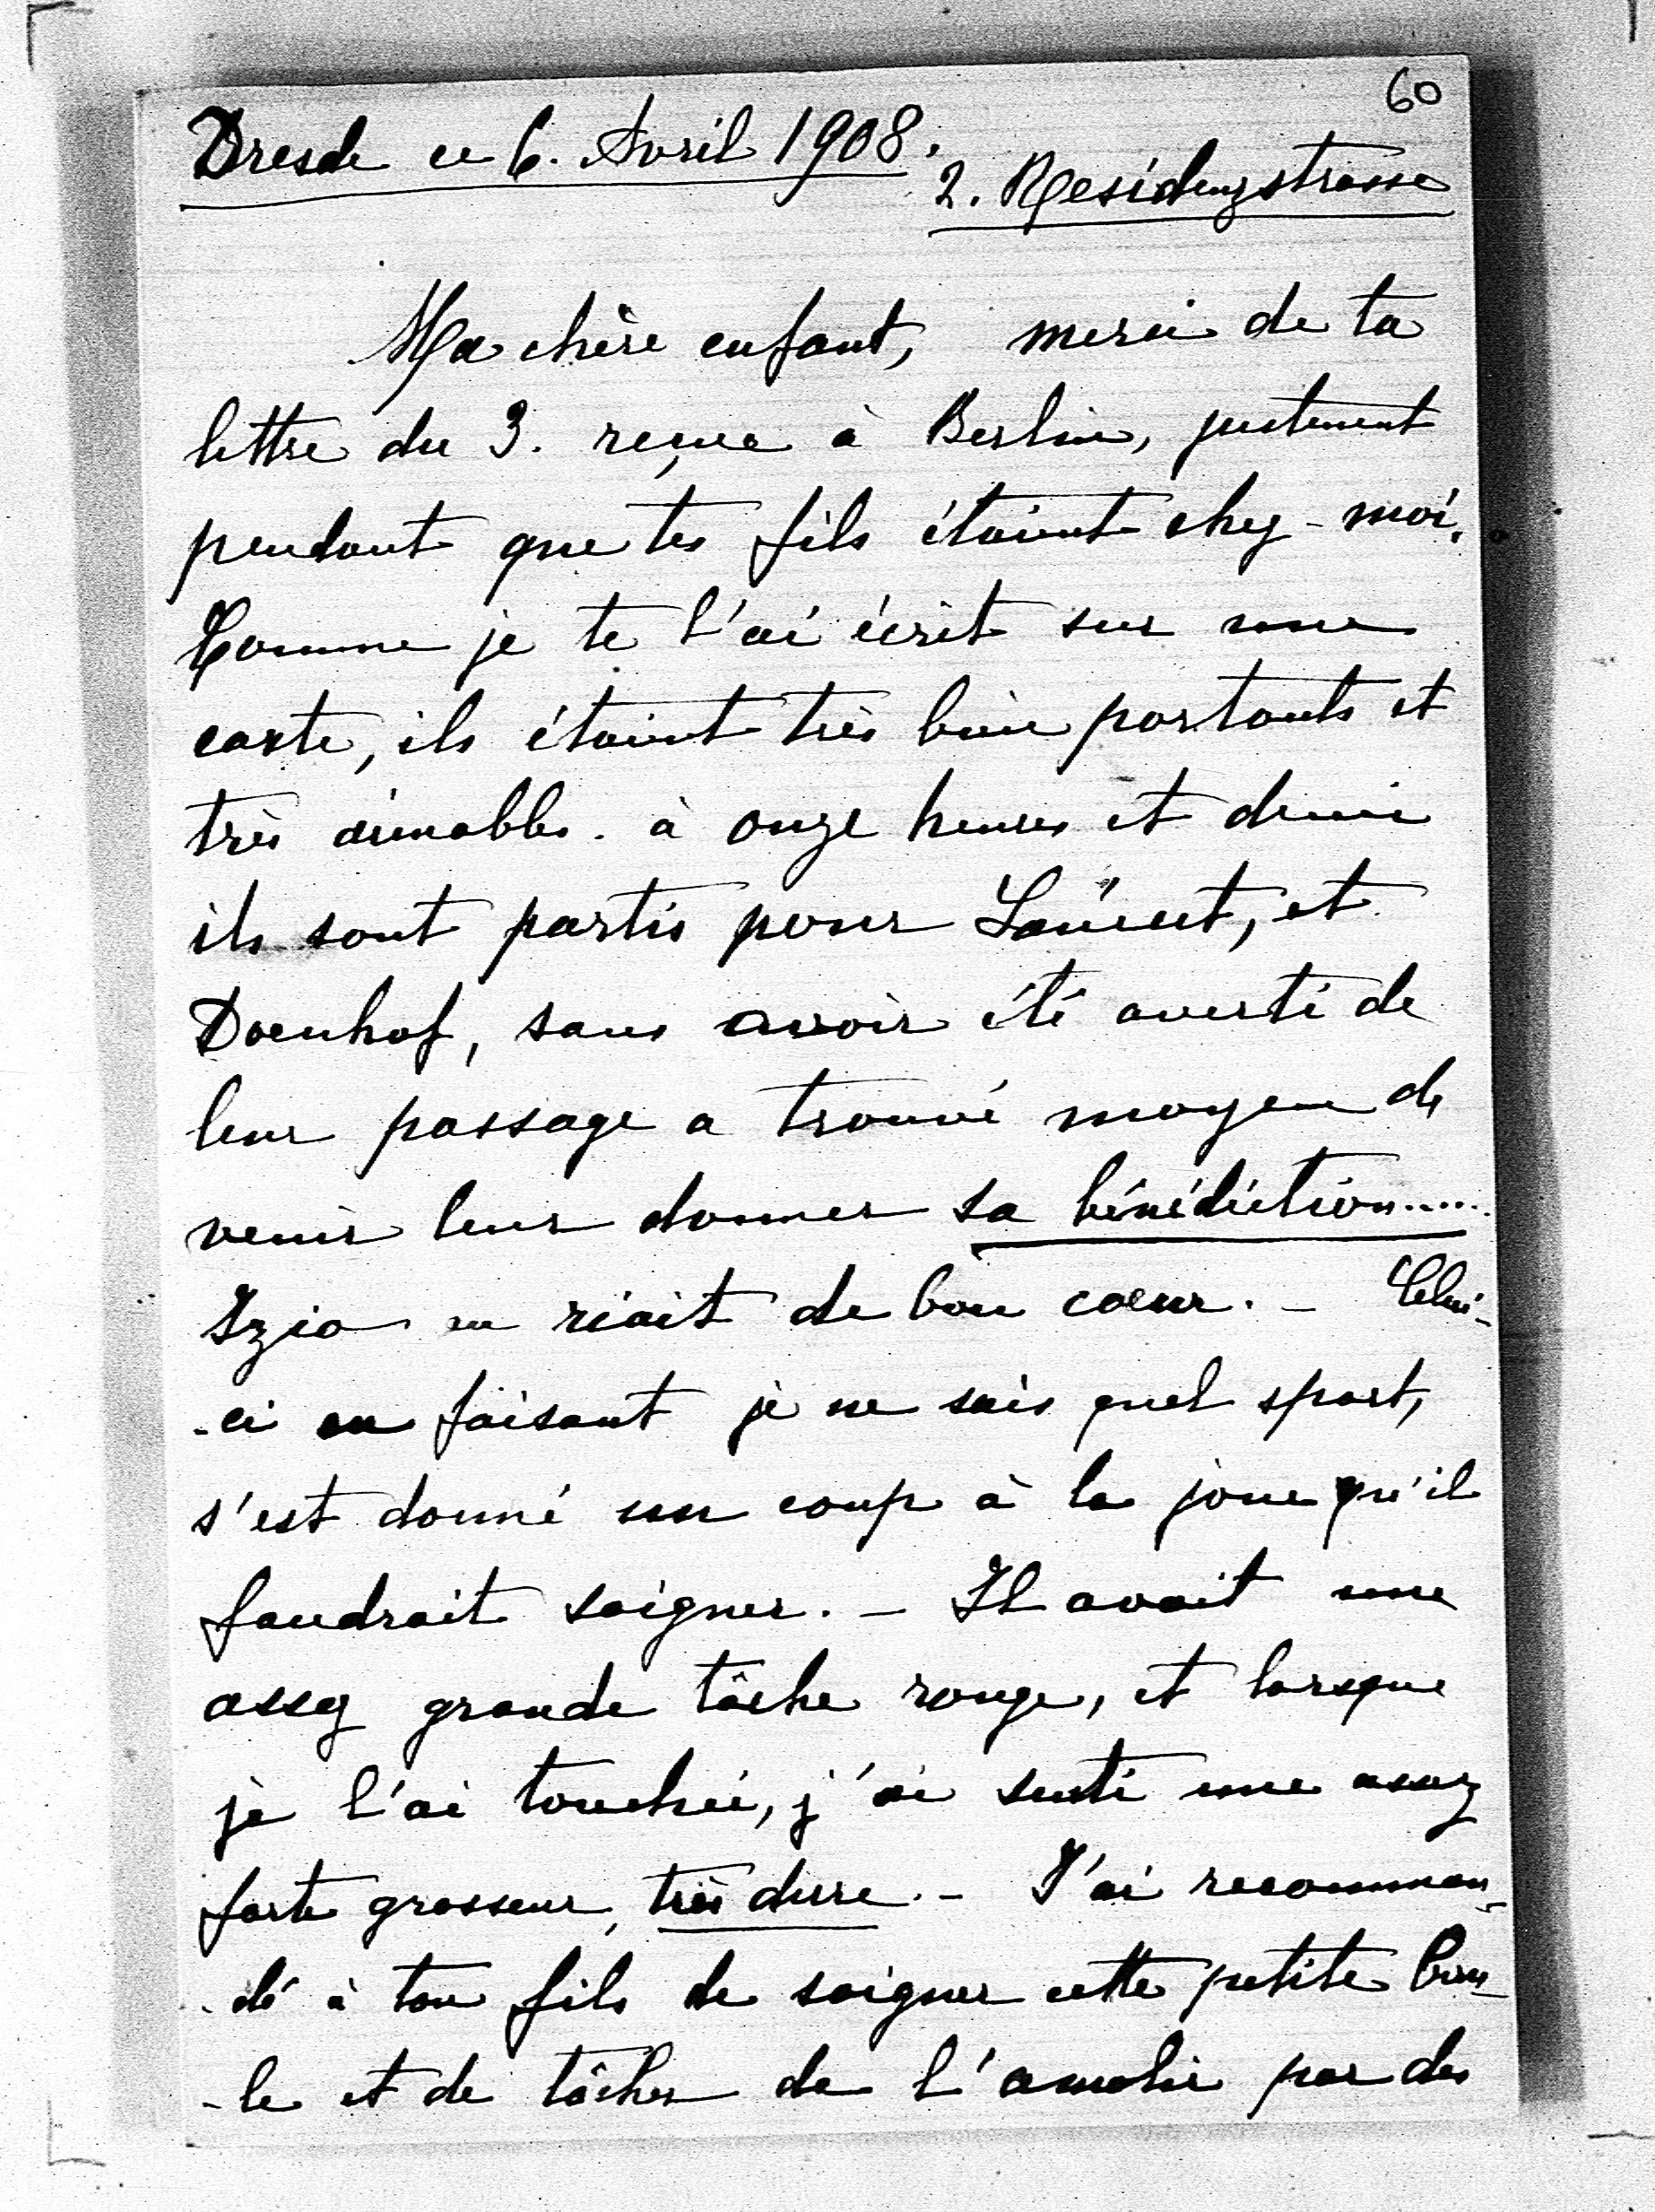 60
Dresde ce 6. Avril 1908.
2. Residenzstrasse
Ma chère enfant, merci de ta
lettre du 3. reçue à Berlin, justement
pendant que tes fils étaient chez-moi.
Comme je te l'ai écrit sur une
carte, ils étaient très bien portants et
très aimables. à onze heures et demie
ils sont partis pour Lancut, et
Doenhof, sans avoir été averti de
leur passage a trouvé moyen de
venir leur donner sa bénédiction.....
Izio en riait de bon coeur. - Celui-
-ci en faisant je ne sais quel sport,
s'est donné un coup à la joue qu'il
faudrait soigner. - Il avait une
assez grande tâche rouge, et lorsque
je l'ai touchée, j'ai senti une assez
forte grosseur, très dure. - J'ai recomman-
-dé à ton fils de soigner cette petite bou-
-le et de tâcher de l'amolir par des